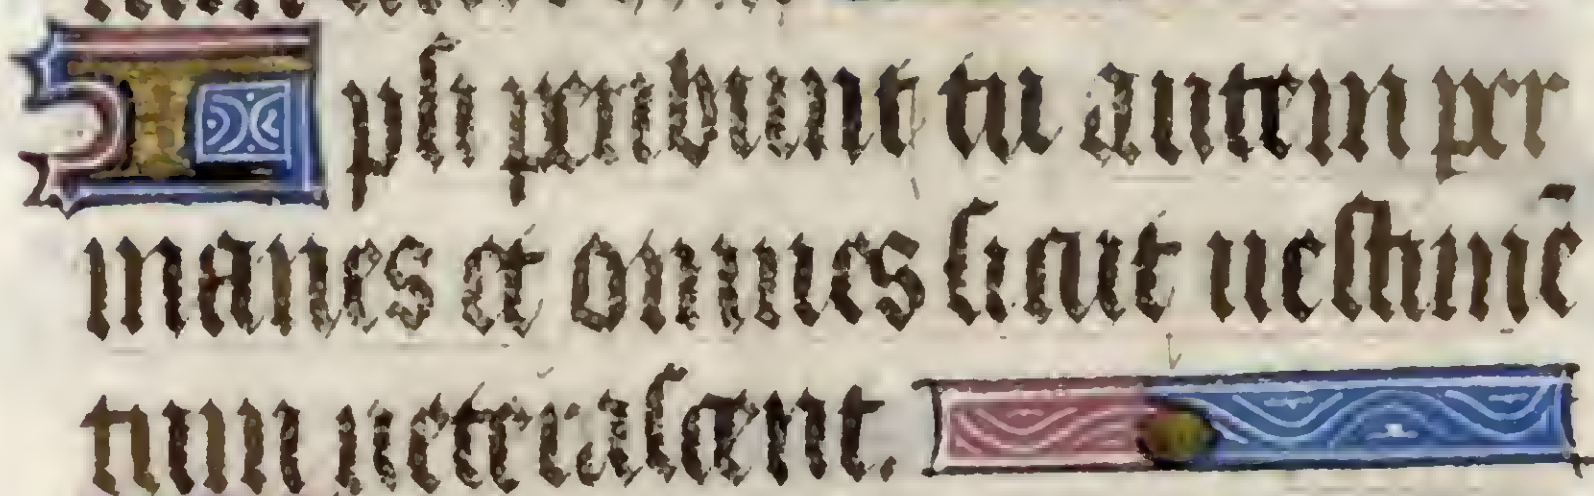 Ipsi peribunt tu autem per
manes et omnes sicut uestimē
tum ueterascent.